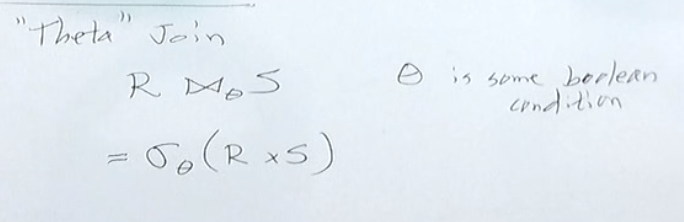 "Theta" Join
R ⋈θ S
θ is some boolean
condition
= σθ(R × S)